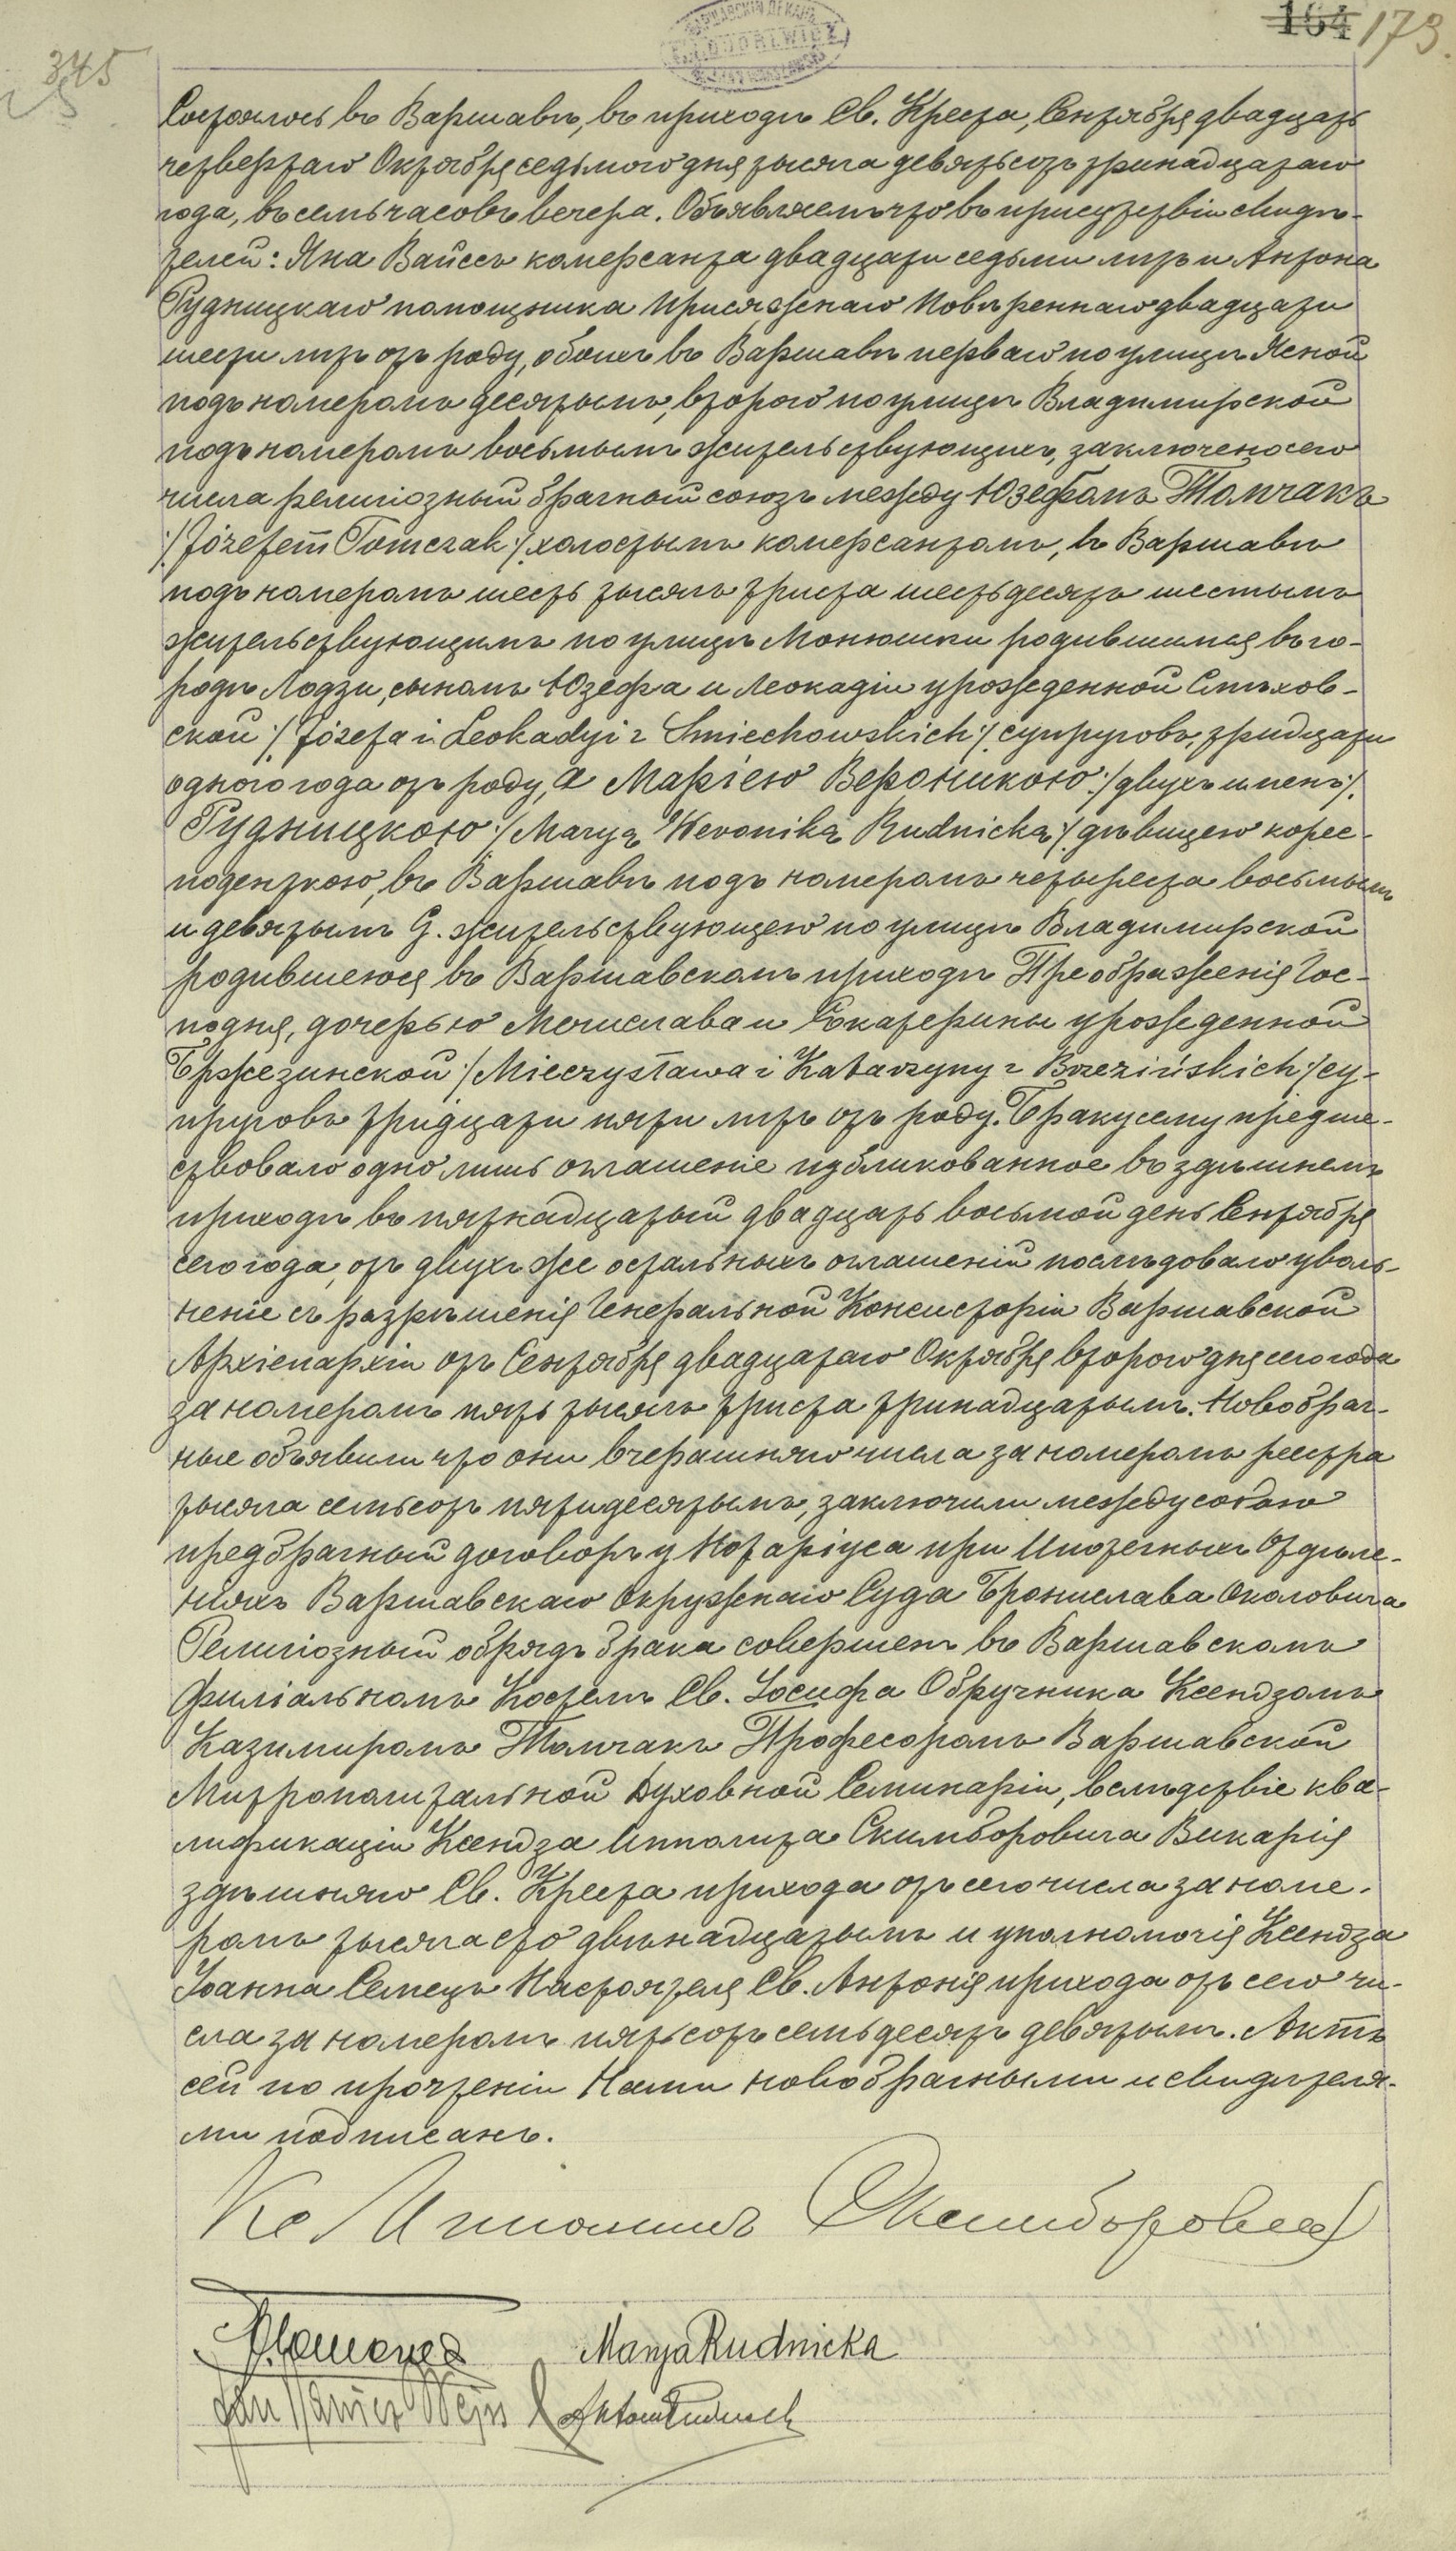 345
164 173.
Состоялось въ Варшавѣ, въ приходѣ Св. Креста, Сентября двадцать
четвертаго Октября седьмого дня тысяча девятьсотъ тринадцатаго
года, въ семь часовъ вечера. Объявляемъ что въ присутствіи свидѣ-
телей: Яна Вайссъ комерсанта двадцати седьми лѣтъ и Антона
Рудницкаго помощника Присяжнаго Повѣреннаго двадцати
шести лѣтъ отъ роду, обоихъ въ Варшавѣ перваго по улицѣ Ясной
подъ номеромъ десятымъ, второго по улицѣ Владимирской
подъ номеромъ восьмымъ жительствующихъ, заключено сего
числа религіозный брачный союзъ между Юзефомъ Томчакъ
:/Józefem Tomczak:/ холостымъ комерсантомъ, въ Варшавѣ
подъ номеромъ шесть тысячъ триста шестьдесятъ шестымъ
жительствующимъ по улицѣ Монюшки родившимся въ го-
родѣ Лодзи, сыномъ Юзефа и Леокадіи урожденной Смѣхов-
ской :/Józefa i Leokadyi z Smiechowskich:/ супруговъ, тридцати
одного года отъ роду, а Маріею Вероникою :/двухъ именъ:/
Рудницкою :/Maryą Weroniką Rudnicką:/ дѣвицею корес-
понденткою, въ Варшавѣ подъ номеромъ четыреста восьмымъ
и девятымъ G. жительствующею по улицѣ Владимирской
родившеюся въ Варшавскомъ приходѣ Преображенія Гос-
подня, дочерью Мечислава и Екатерины урожденной
Бржезинской :/Mieczysława i Katarzyny z Brzezińskich:/ су-
пруговъ тридцати пяти лѣтъ отъ роду. Браку сему предше-
ствовало одно лишь оглашеніе публикованное въ здѣшнемъ
приходѣ въ пятнадцатый двадцать восьмой день Сентября
сего года, отъ двухъ же остальныхъ оглашеній послѣдовало уволь-
неніе съ разрѣшенія Генеральной Консисторіи Варшавской
Архіепархіи отъ Сентября двадцатаго Октября второго дня сего года
за номеромъ пять тысячъ триста тринадцатымъ. Новобрач-
ные объявили что они вчерашняго числа за номеромъ реестра
тысяча семьсотъ пятидесятымъ, заключили между собою
предбрачный договоръ у Нотаріуса при Ипотечныхъ Отдѣле-
ніяхъ Варшавскаго Окружнаго Суда Бронислава Околовича
Религіозный обрядъ брака совершенъ въ Варшавскомъ
Филіальномъ Костелѣ Св. Іосифа Обручника Ксендзомъ
Казимиромъ Томчакъ Професоромъ Варшавской
Митрополитальной Духовной Семинаріи, вслѣдствіе ква-
лификаціи Ксендза Ипполита Скимборовича Викарія
здѣшняго Св. Креста прихода отъ сего числа за номе-
ромъ тысяча сто двѣнадцатымъ и уполномочія Ксендза
Іоанна Семецъ Настоятеля Св. Антонія прихода отъ сего чи-
сла за номеромъ пятьсотъ семьдесятъ девятымъ. Актъ
сей по прочтеніи Нами новобрачными и свидѣтеля-
ми подписанъ.
Кс Ипполитъ Скимборовичъ
Marya Rudnicka